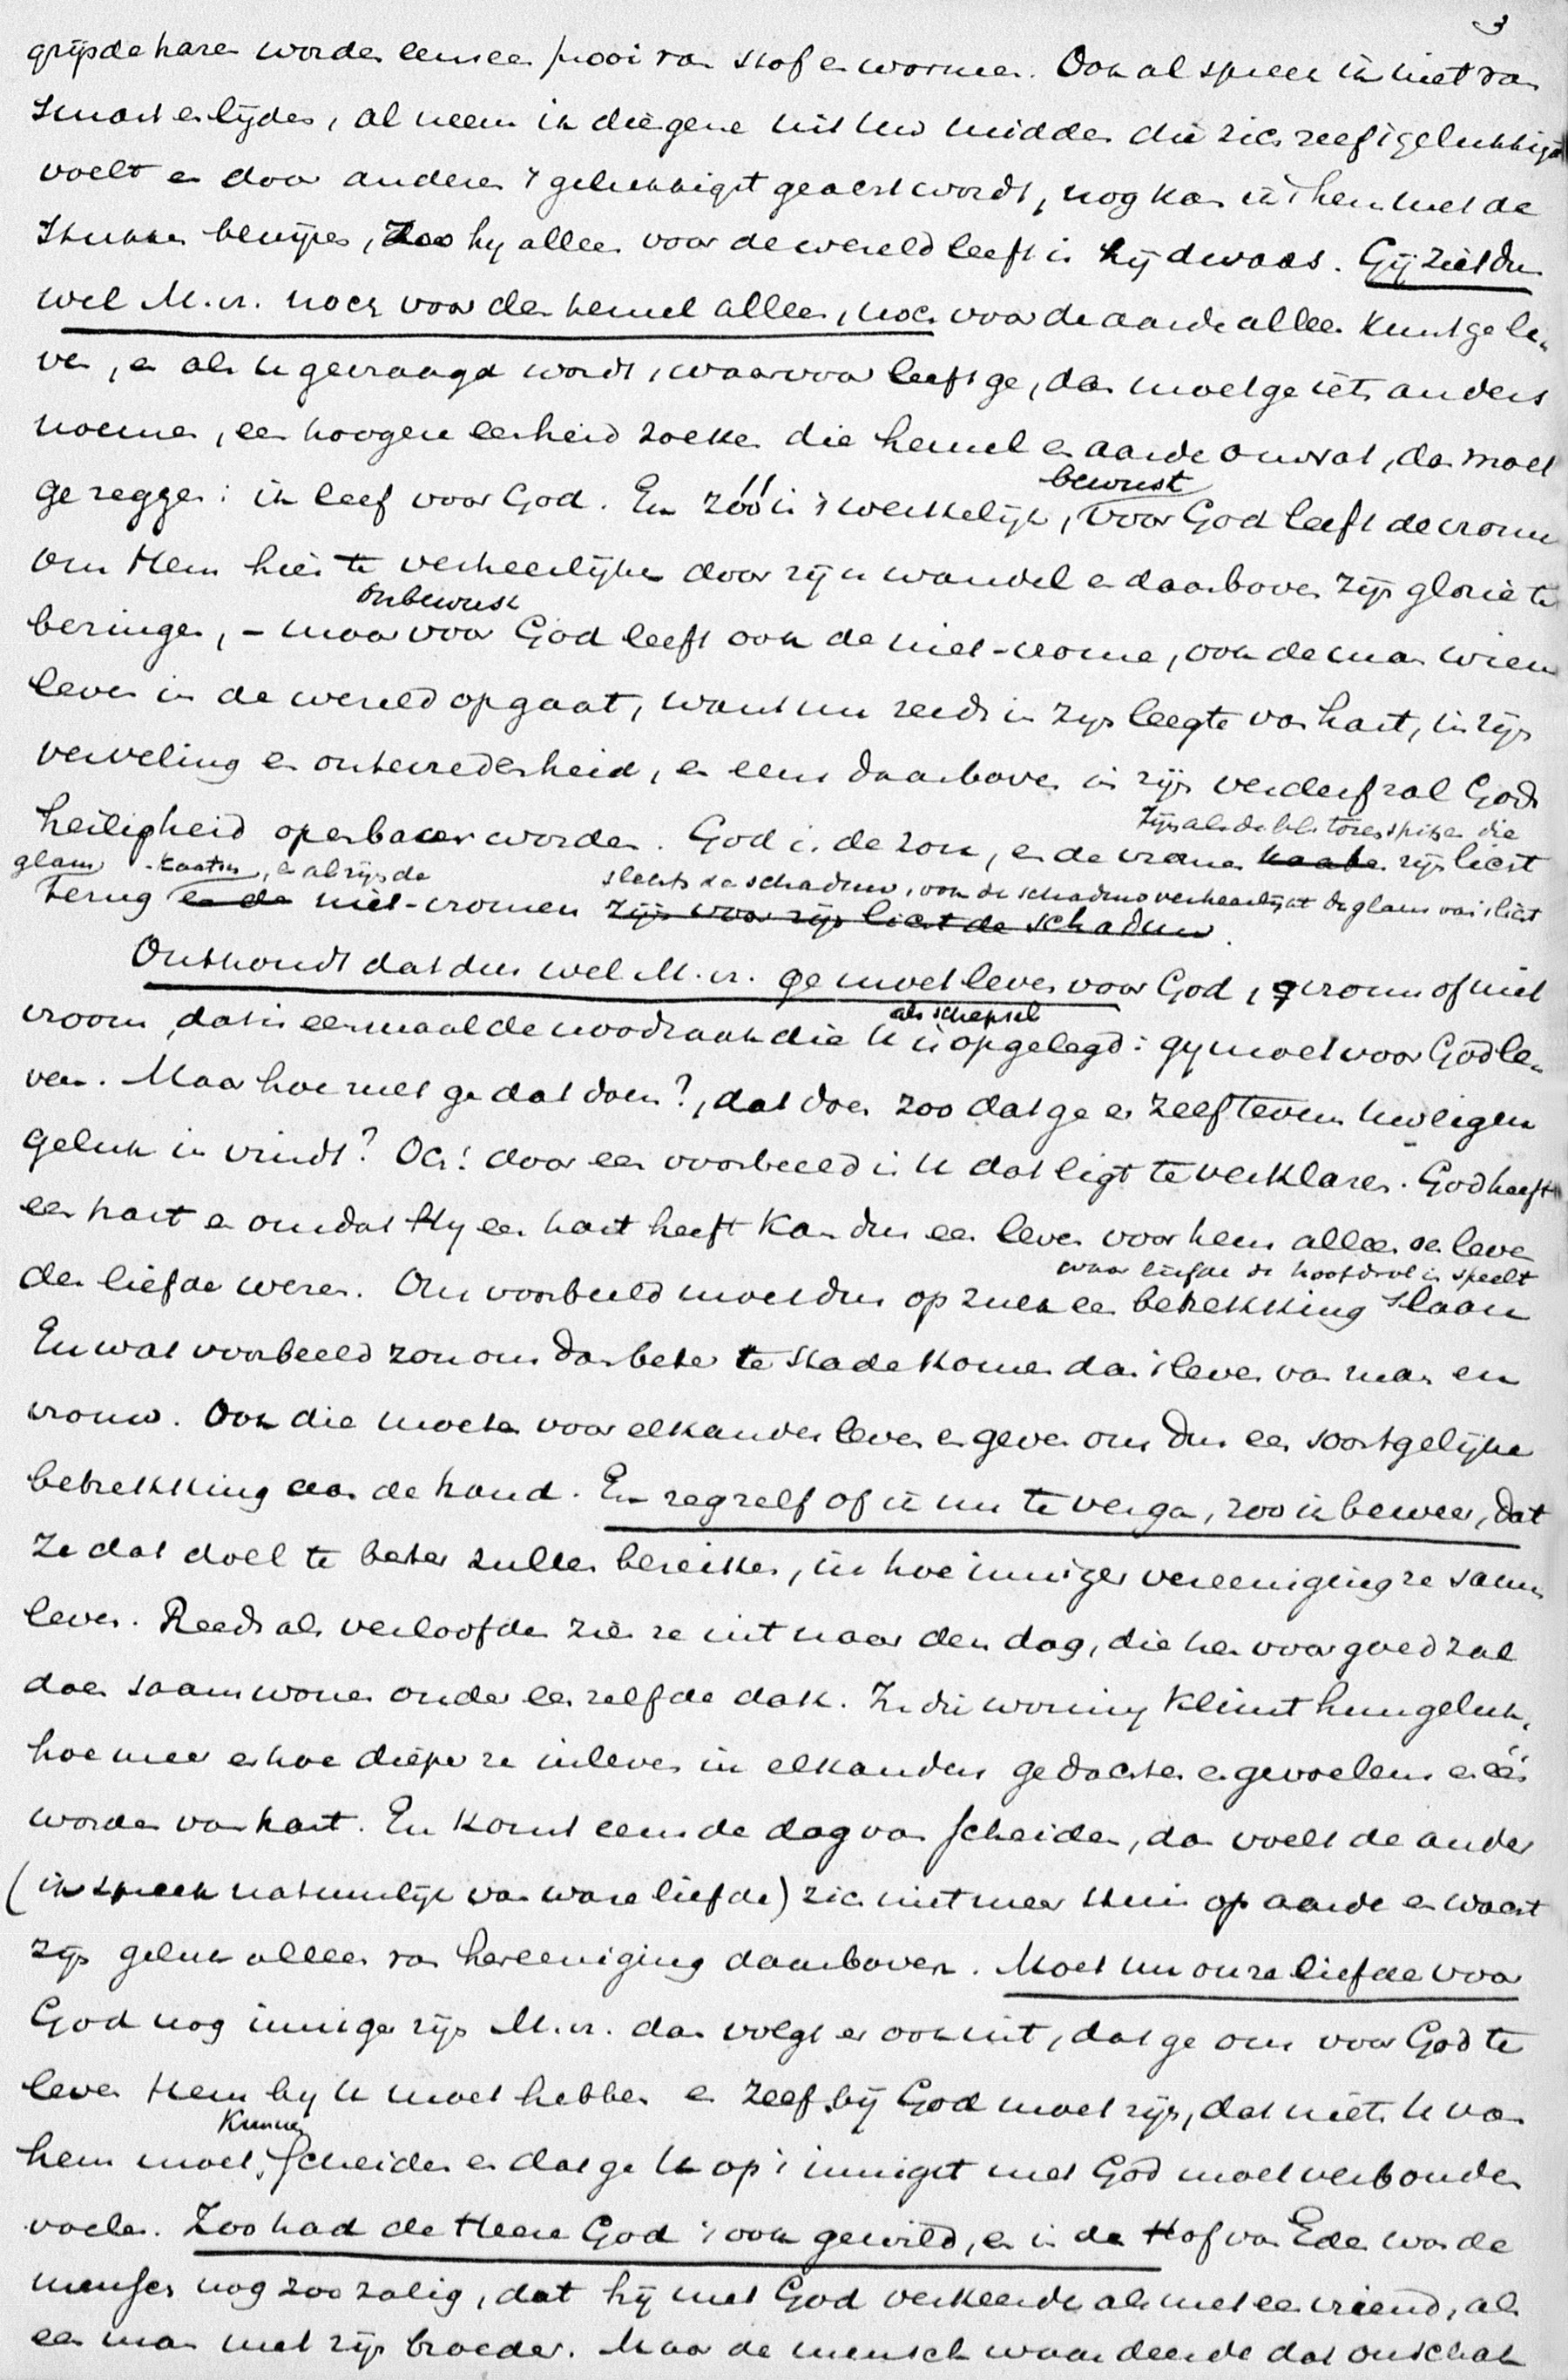 3
grijsde haren worden eens een prooi van stof en wormen. Ook al spreek ik niet van
smart en lijden, al neem ik diegene uit uw midden die zich zelf 't gelukkigst
voelt en door anderen 't gelukkigst geacht wordt, nog kan ik 't hem met de
stukken bewijzen, Zoo hy alleen voor de wereld leeft is hij dwaas. Gij ziet dus
wel M.vr. noch voor den hemel alleen, noch voor de aarde alleen kunt ge le-
ven, en als u gevraagd wordt, waarvoor leeft ge, dan moet ge iets anders
noemen, een hoogere eenheid zoeken die hemel en aarde omvat, dan moet
bewust
ge zeggen: ik leef voor God. En zóó is 't werkelijk, voor God leeft de vrome
om Hem hier te verheerlijken door zijn wandel en daarboven zijn glorie te
onbewust
bezingen, - maar voor God leeft ook de niet-vrome, ook de man wiens
leven in de wereld opgaat, want nu reeds in zijn leegte van hart, in zijn
verveling en ontevredenheid, en eens daarboven in zijn verderf zal Gods
heiligheid openbaar worden. God is de zon, en de vromen kaatsen zijn licht
zijn als de blitorenspitsen die
glans kaatsen, en al zijn de
slechts de schaduw, ook de schaduw verheerlijkt de glans van 't licht
terug en de niet-vromen zijn voor zijn licht de schaduw.
Onthoudt dat dus wel M.vr. ge moet leven voor God, vroom of niet
als schepsel
vroom, dat is eenmaal de noodzaak die u is opgelegd: gy moet voor God le-
ven. Maar hoe zult ge dat doen?, dat doen zoo dat ge er zelf tevens uw eigen
geluk in vindt? Och! door een voorbeeld is u dat ligt te verklaren. God heeft
een hart en omdat Hy een hart heeft kan dus een leven voor hem alleen een leven
waar liefde de hoofdrol in speelt
der liefde wezen. Ons voorbeeld moet dus op zulk een betrekking slaan
En wat voorbeeld zou ons dan beter te stade komen dan 't leven van man en
vrouw. Ook die moeten voor elkander leven en geven ons dus een soortgelijke
betrekking aan de hand. En zeg zelf of ik nu te ver ga, zoo ik beweer, dat
ze dat doel te beter zullen bereiken, in hoe inniger vereeniging ze saam
leven. Reeds als verloofden zien ze uit naar den dag, die hen voor goed zal
doen saamwonen onder een zelfde dak. In die woning klimt hun geluk,
hoe meer en hoe dieper ze inleven in elkanders gedachten en gevoelens en één
worden van hart. En komt eens de dag van scheiden, dan voelt de ander
(ik spreek natuurlijk van ware liefde) zich niet meer thuis op aarde en wacht
zijn geluk alleen van hereeniging daarboven. Moet nu onze liefde voor
God nog inniger zijn M.vr. dan volgt er ook uit, dat ge om voor God te
leven Hem by u moet hebben en zelf bij God moet zijn, dat niets u van
kunnen
hem moet scheiden en dat ge u op 't innigst met God moet verbonden
voelen. Zoo had de Heere God 't ook gewild, en in den Hof van Eden was de
mensch nog zoo zalig, dat hij met God verkeerde als met een vriend, als
een man met zijn broeder. Maar de mensch waardeerde dat onschat